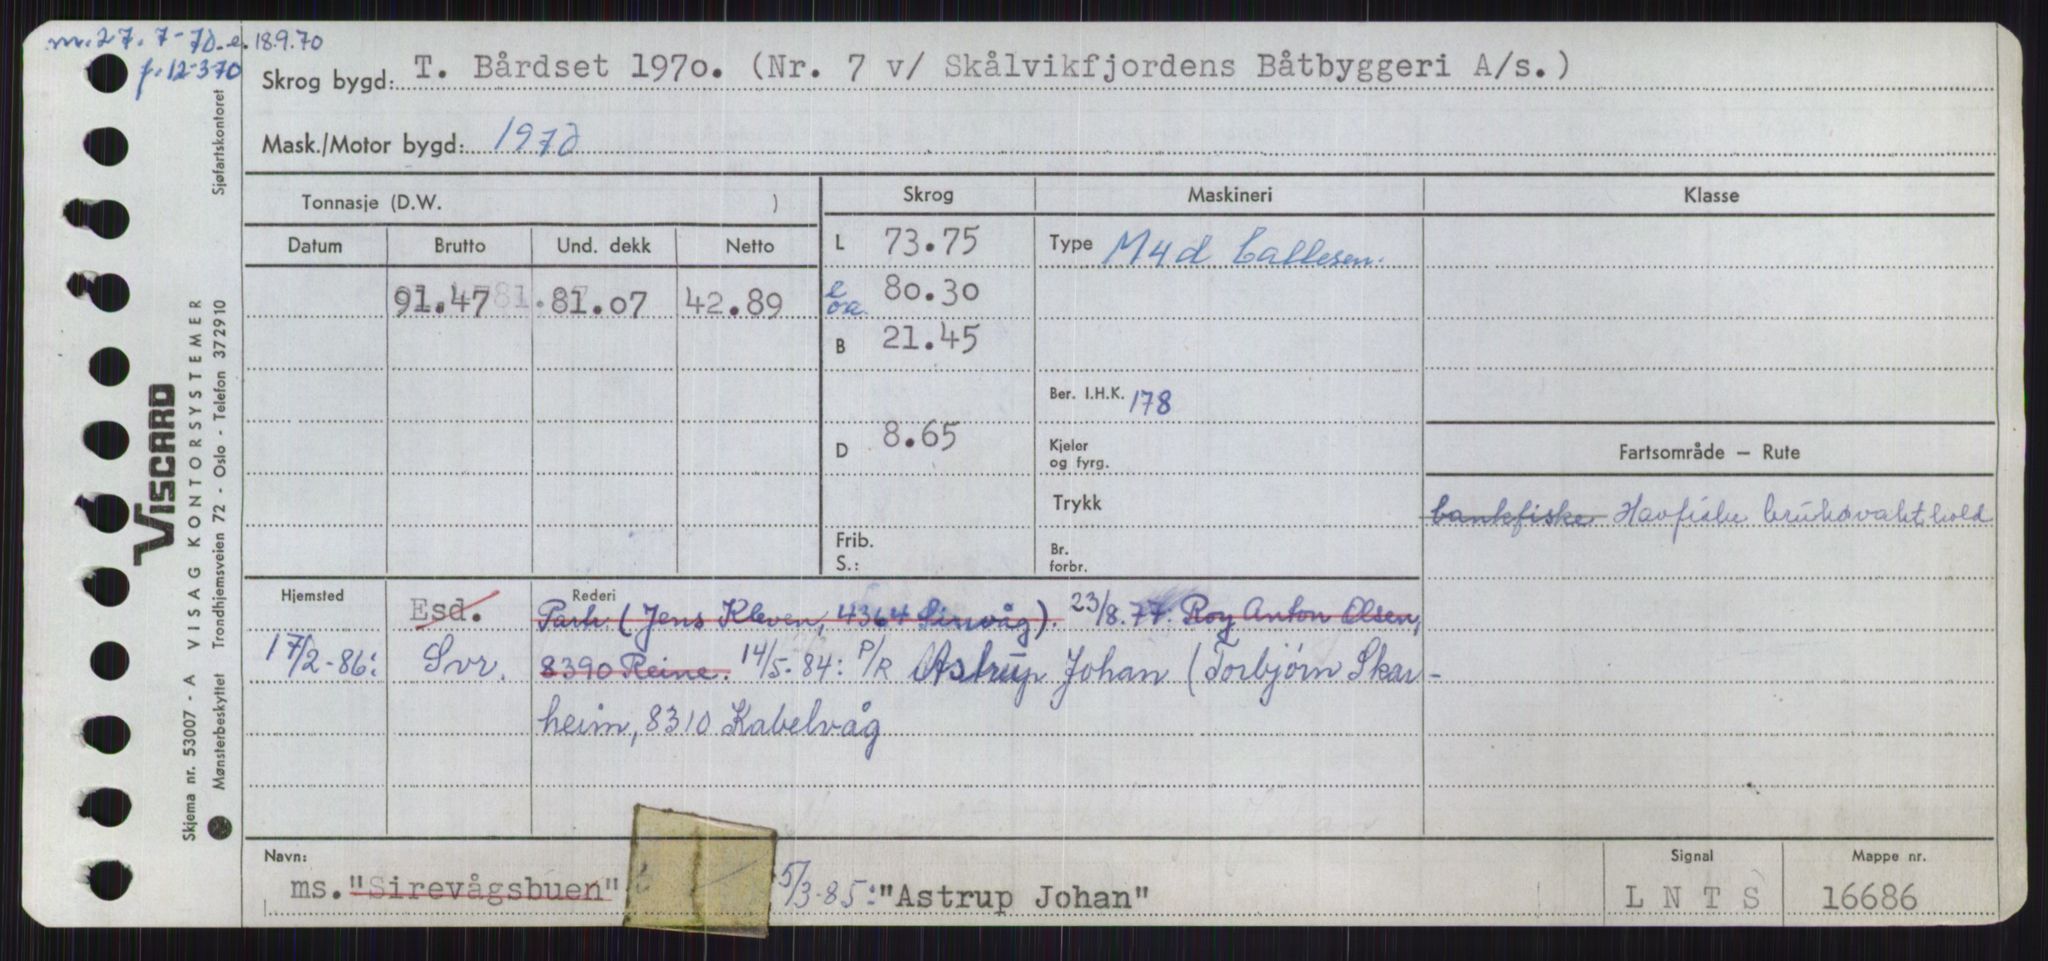 m. 27.7-70. e. 18.9.70
f. 12-3-70
Skrog bygd: T. Bårdset 1970. (Nr. 7 v/ Skålvikfjordens Båtbyggeri A/s.)
Mask./Motor bygd: 1970
Tonnasje (D.W. )
Skrog
Maskineri
Klasse
Datum Brutto Und. dekk Netto
91.47 81.07 42.89
L 73.75
loa 80.30
B 21.45
D 8.65
Frib.
S.:
Type M4d Callesen.
Ber. I.H.K. 178
Kjeler
og fyrg.
Trykk
Br.
forbr.
Fartsområde — Rute
bankfiske Havfiske bruksvakthold
Hjemsted Esd. Rederi Partr. (Jens Kleven, 4364 Sirevåg). 23/8.77. Roy Anton Olsen,
17/2-86: Svr. 8390 Reine. 14/5-84: P/R Astrup Johan (Torbjørn Skar-
heim, 8310 Kabelvåg
Navn:
ms. "Sirevågsbuen" 5/3-85: "Astrup Johan"
Signal
L N T S
Mappe nr.
16686
VISCARD
Skjema nr. 53007 - A VISAG KONTORSYSTEMER
Mønsterbeskyttet Trondhjemsveien 72 - Oslo - Telefon 372910
Sjøfartskontoret